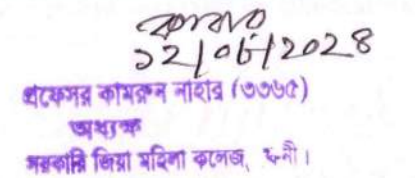 ১২/০৮/২০২৪
প্রফেসর কামরুন নাহার (৩৩৬৫)
অধ্যক্ষ
সরকারি জিয়া মহিলা কলেজ, ফেনী।